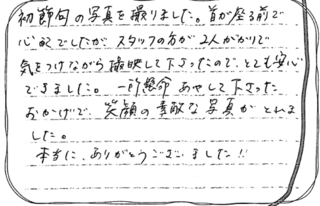 初節句の写真を撮りました。首が座る前で
心配でしたが、スタッフの方が2人がかりで
気をつけながら撮映して下さったので、とても安心
できました。一所懸命あやして下さった
おかげで、笑顔の素敵な写真がとれま
した。
本当に、ありがとうございました!!